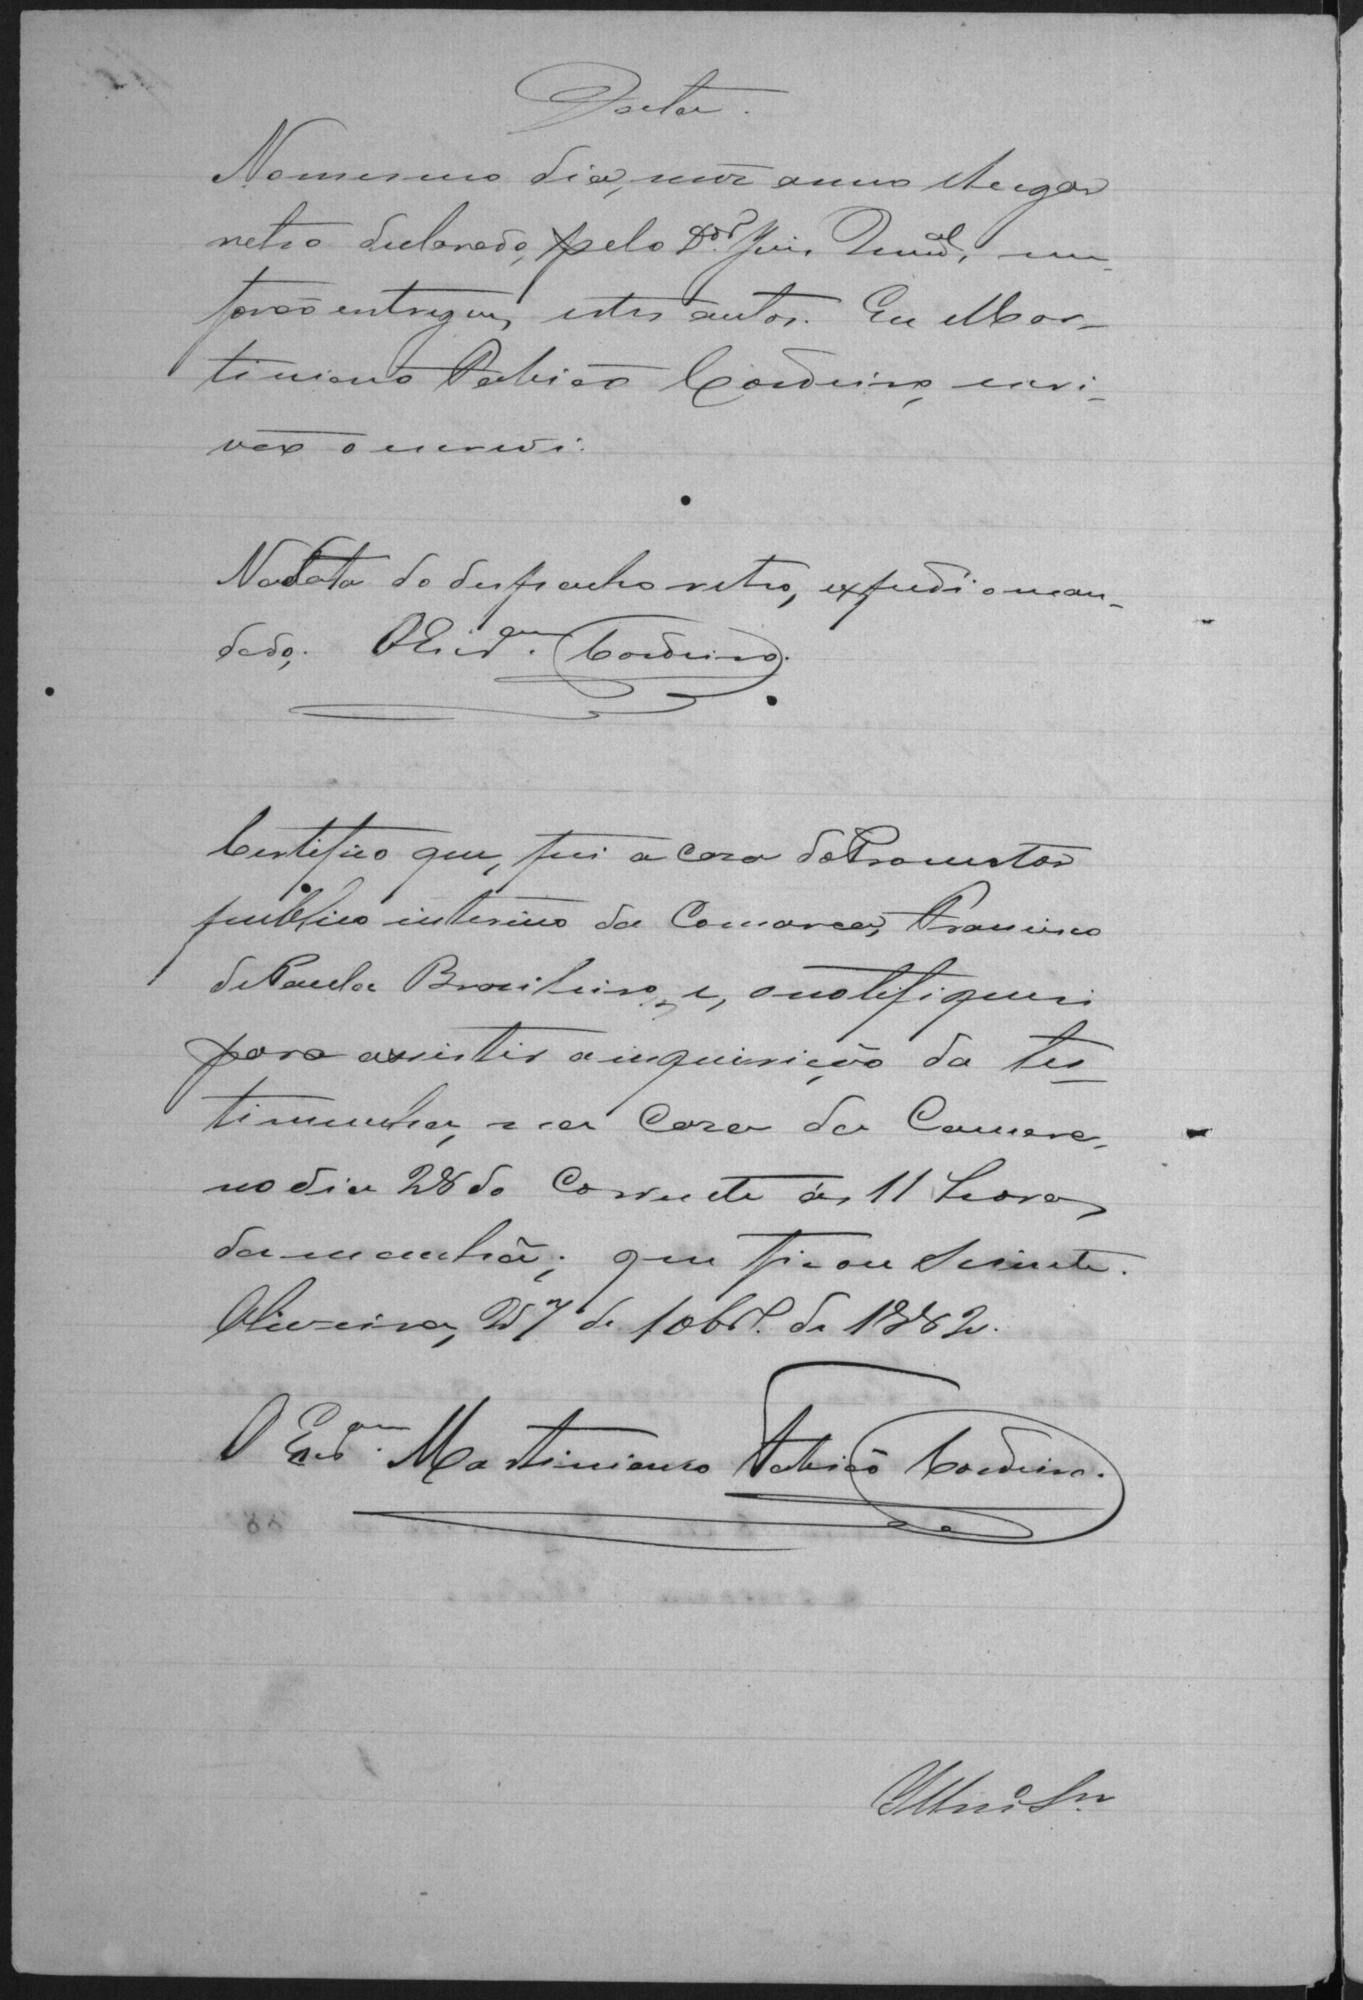 Data.
No mesmo dia, mez anno e lugar
retro declarado, pelo Dor. Juiz Mun.al, me
forão entregues estes autos. Eu Mar-
tiniano Fabião Cordeiro, escri-
vão o escrevi.
Na data do despacho retro, expedi o man-
dado. O Escr.am Cordeiro.
Certifico que, fui a caza do Promotor
publico interino da Comarca, Francisco
de Paula Brasileiro, e, o notifiquei
para assistir a inquirição da tes-
timunha, na Caza da Camara,
no dia 28 do Corrente ás 11 horas
da manhã; que ficou sciente.
Oliveira, 27 de 10br.o de 1882.
O Escr.am Martiniano Fabião Cordeiro.
Illmo. Snr.